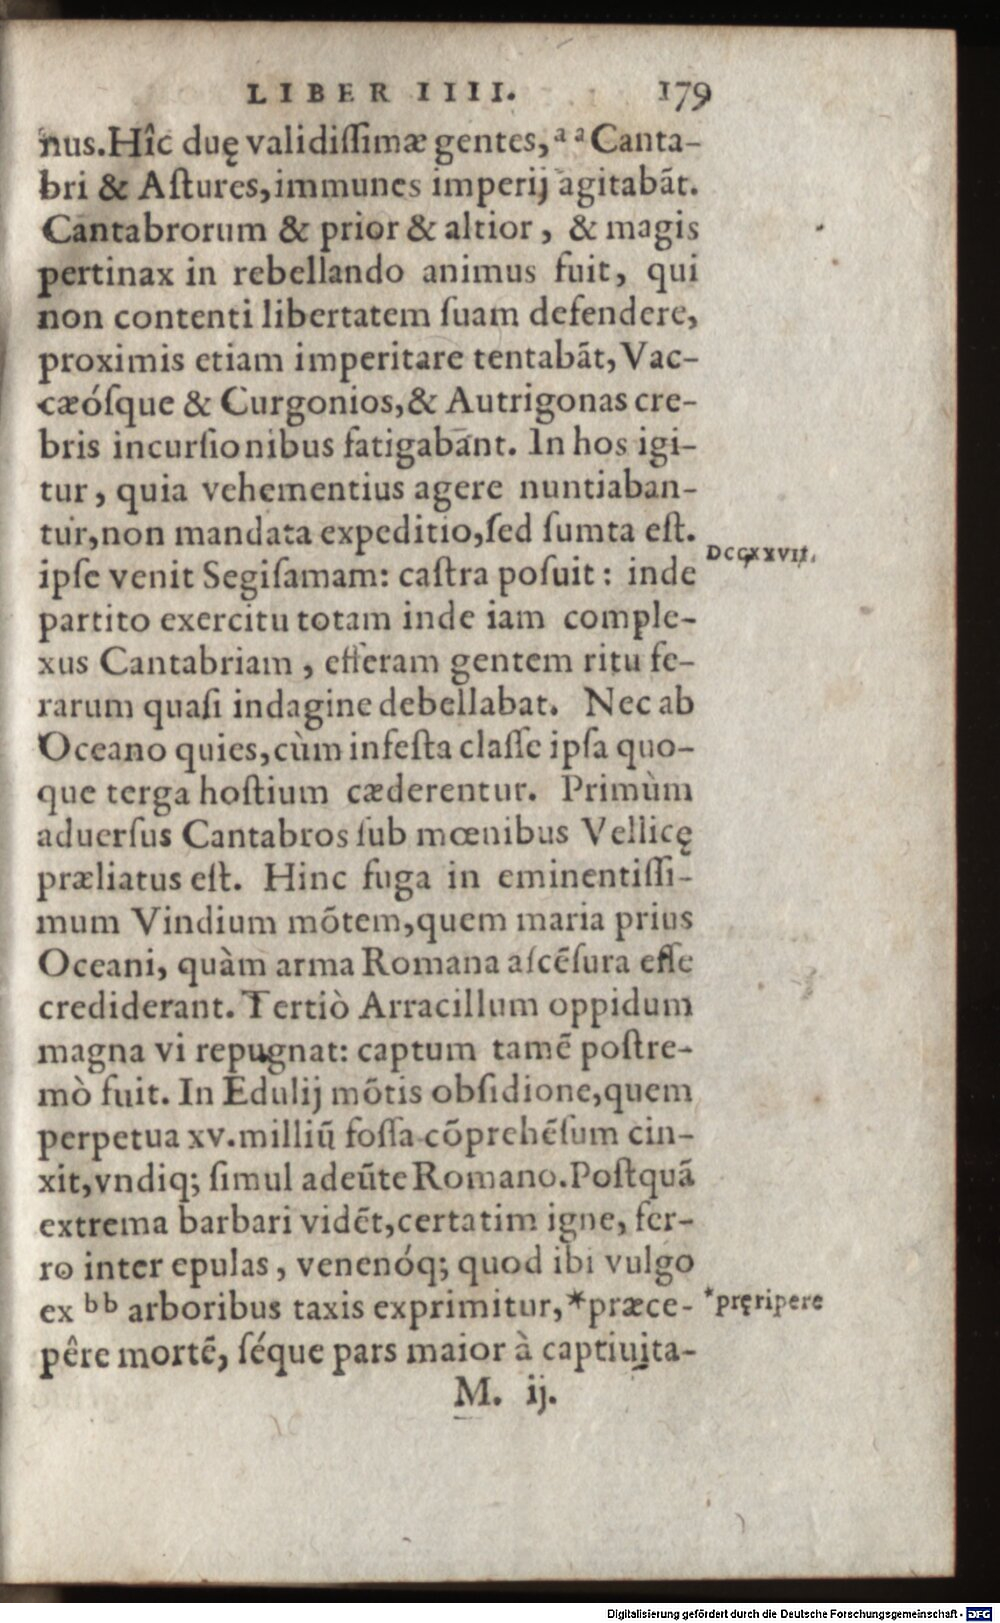 LIBER IIII. 179
nus. Hîc duę validiſſimæ gentes, ᵃᵃ Canta-
bri & Aſtures, immunes imperij agitabãt.
Cantabrorum & prior & altior, & magis
pertinax in rebellando animus fuit, qui
non contenti libertatem ſuam defendere,
proximis etiam imperitare tentabãt, Vac-
cæóſque & Curgonios, & Autrigonas cre-
bris incurſionibus fatigabãnt. In hos igi-
tur, quia vehementius agere nuntiaban-
tur, non mandata expeditio, ſed ſumta eſt.
DCCXXVII.
ipſe venit Segiſamam: caſtra poſuit: inde
partito exercitu totam inde iam comple-
xus Cantabriam, efferam gentem ritu fe-
rarum quaſi indagine debellabat. Nec ab
Oceano quies, cùm infeſta claſſe ipſa quo-
que terga hoſtium cæderentur. Primùm
aduerſus Cantabros ſub mœnibus Vellicę
præliatus eſt. Hinc fuga in eminentiſſi-
mum Vindium mõtem, quem maria prius
Oceani, quàm arma Romana aſcẽſura eſſe
crediderant. Tertiò Arracillum oppidum
magna vi repugnat: captum tamẽ poſtre-
mò fuit. In Edulij mõtis obſidione, quem
perpetua xv. milliũ foſſa cõprehẽſum cin-
xit, vndiq; ſimul adeũte Romano. Poſtquã
extrema barbari vidẽt, certatim igne, fer-
ro inter epulas, venenóq; quod ibi vulgo
ex ᵇᵇ arboribus taxis exprimitur, *præce-
*pręripere
pêre mortẽ, ſéque pars maior à captiuita-
M. ij.
Digitalisierung gefördert durch die Deutsche Forschungsgemeinschaft - DFG